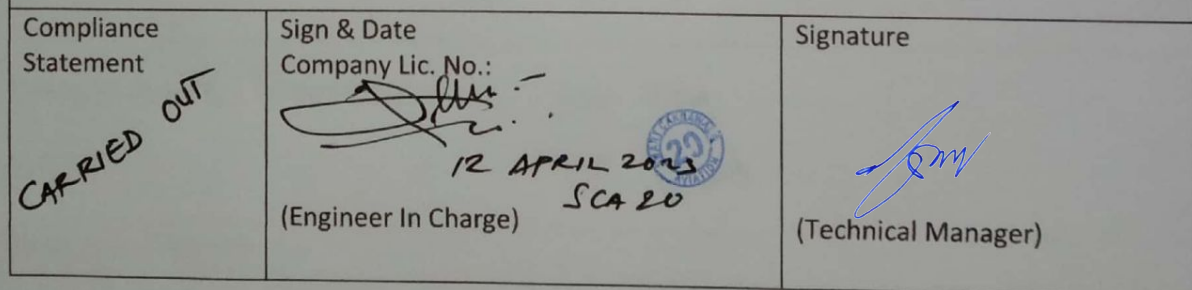 Compliance
Statement
CARRIED OUT
Sign & Date
Company Lic. No.:
12 APRIL 2023
SCA 20
20
AVIATION
(Engineer In Charge)
Signature
(Technical Manager)